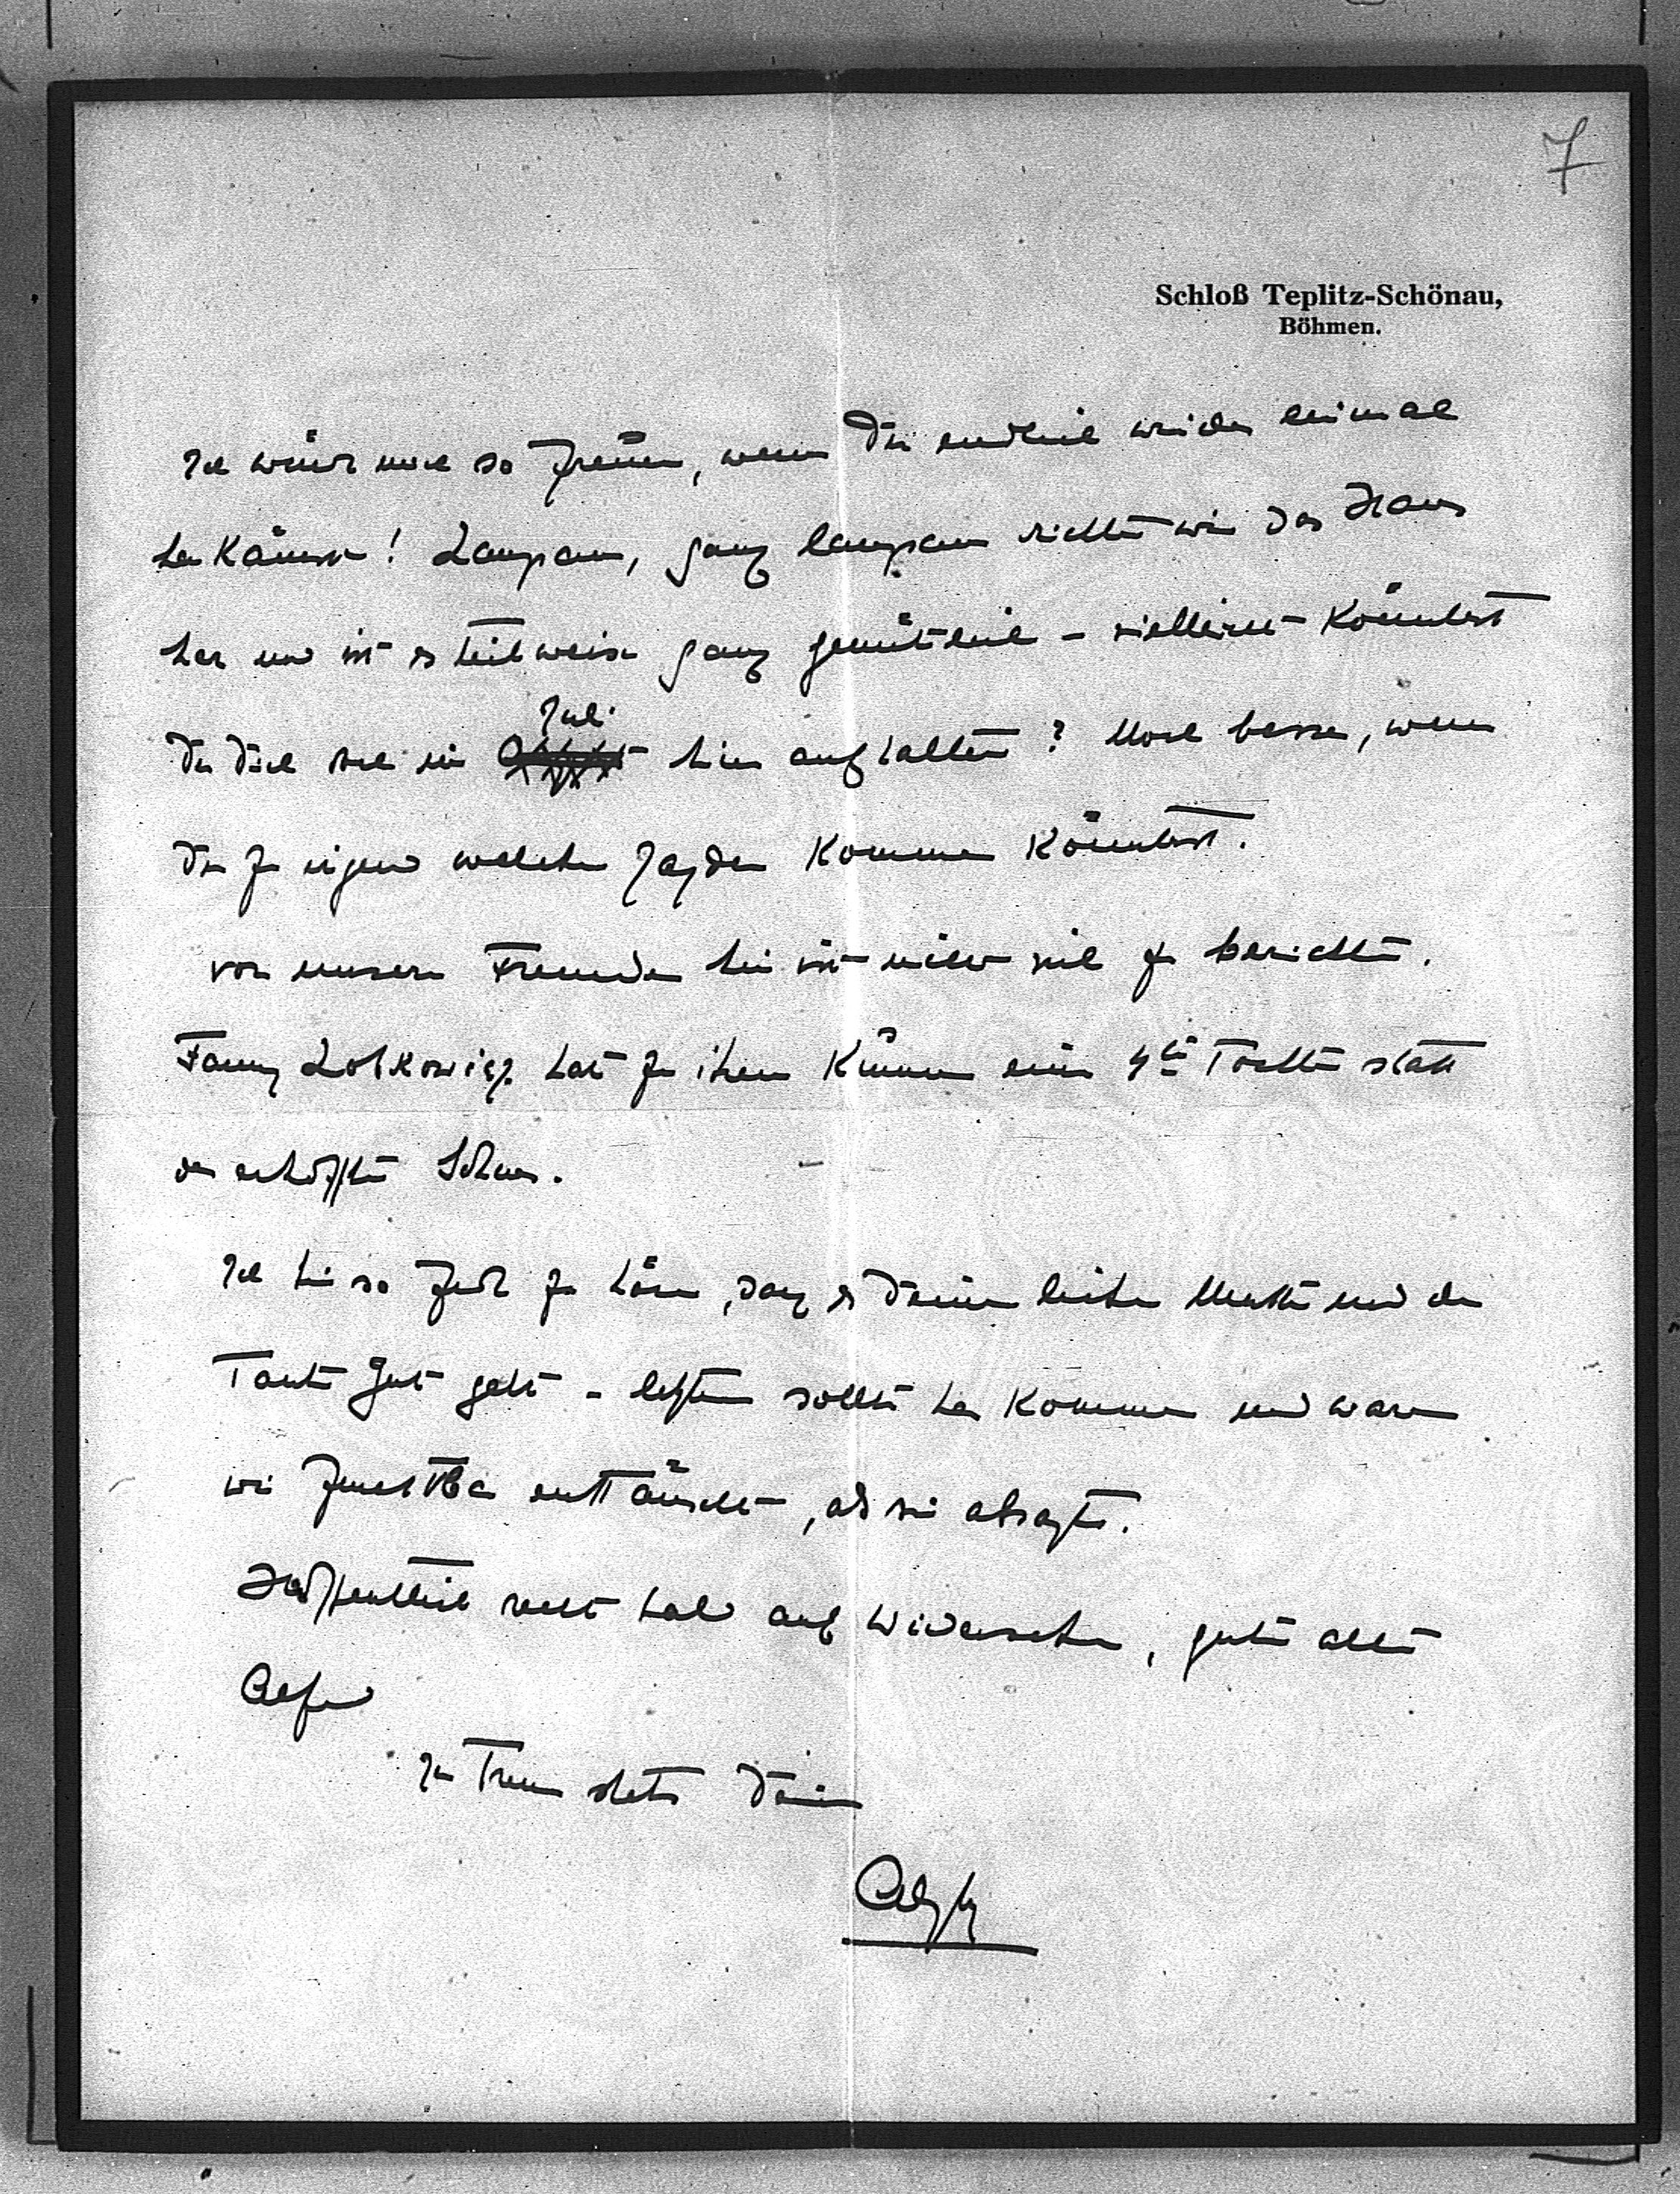 7
Schloß Teplitz-Schönau,
Böhmen.
Ich würde mich so freuen, wenn Du endlich wieder einmal
her kämest! Langsam, ganz langsam richten wir das Haus
her und ist es teilweise ganz gemütlich - vielleicht könntest
Juli
Du Dich im hier aufhalten? Noch besser, wenn
Du zu irgend welchen Jagden kommen könntest.
von unseren Freunden hier ist nicht viel zu berichten.
Fanny Lobkowicz hat zu ihrem Kummer eine 4te Tochter statt
des erhofften Sohnes.
Ich bin so froh zu hören, daß es Deiner lieben Mutter und der
Tante gut geht - letztere sollte her kommen und waren
wir furchtbar enttäuscht, als sie absagte.
Hoffentlich recht bald auf Wiedersehen, guter alter
In Treue stets Dein